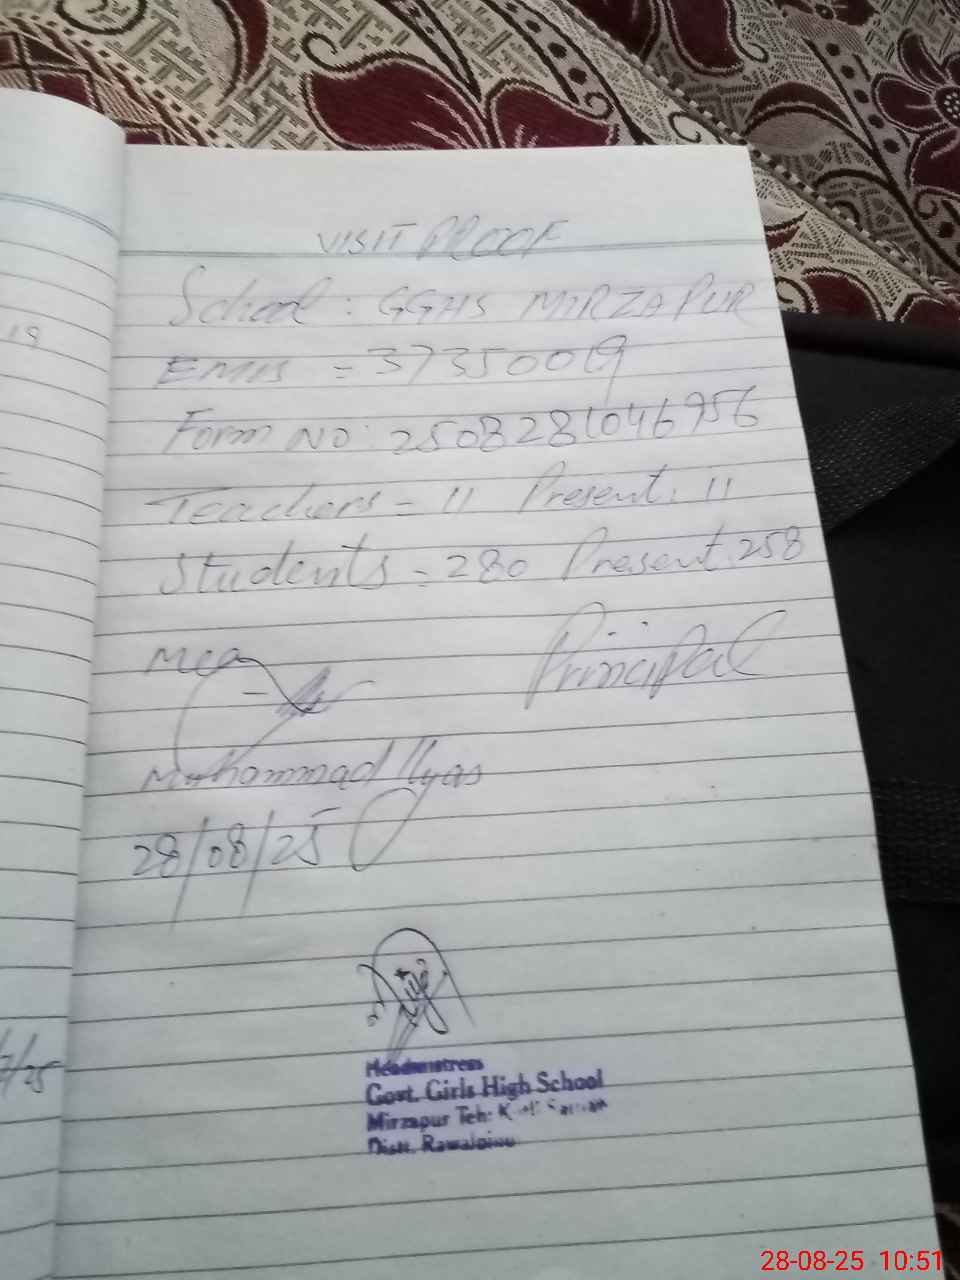 18
7/25
VISIT PROOF
School : GGHS MIRZAPUR
EMIS = 37350019
Form NO: 2508281046956
Teachers = 11 Present: 11
Students = 280 Present: 258
MEA Principal
Muhammad Ilyas
28/08/25
Headmistress
Govt. Girls High School
Mirzapur Teh:
Distt. Rawalpindi
28-08-25 10:51